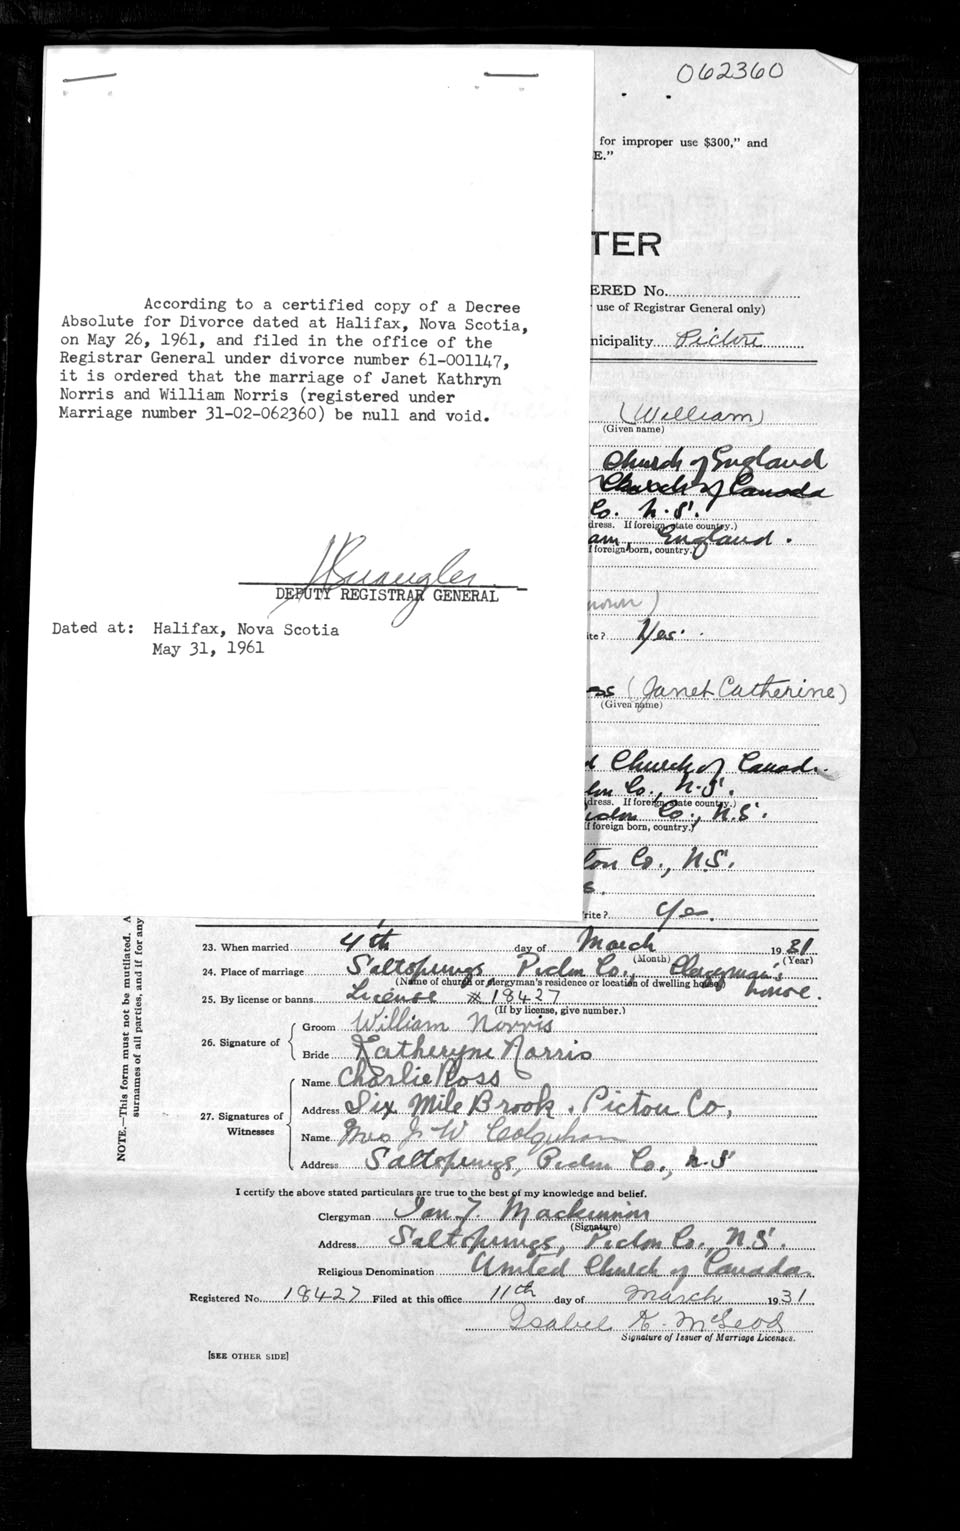 062360
for improper use $300," and
E."
TER
ERED No.
use of Registrar General only)
nicipality Pictou
According to a certified copy of a Decree
Absolute for Divorce dated at Halifax, Nova Scotia,
on May 26, 1961, and filed in the office of the
Registrar General under divorce number 61-001147,
it is ordered that the marriage of Janet Kathryn
Norris and William Norris (registered under
Marriage number 31-02-062360) be null and void.
DEPUTY REGISTRAR GENERAL
Dated at: Halifax, Nova Scotia
May 31, 1961
(William)
(Given name)
Church of England
Church of Canada
Co. N.S.
dress. If foreign state country.)
am, England.
f foreign born, country.)
nown)
te? Yes.
ss (Janet Catherine)
(Given name)
d Church of Canad
Co., N.S.
dress. If foreign state country.)
Co., N.S.
f foreign born, country.)
ton Co., N.S.
s.
rite? Yes.
NOTE.—This form must not be mutilated. A
surnames of all parties, and if for any
23. When married 4th day of March 1931
(Month) (Year)
24. Place of marriage Saltsprings Pictou Co., Clergyman's
(Name of church or clergyman's residence or location of dwelling house) house.
25. By license or banns. License # 18427
(If by license, give number.)
26. Signature of
Groom William Norris
Bride Katheryne Norris
27. Signatures of Witnesses
Name Charlie Ross
Address Six Mile Brook. Pictou Co.
Name Mrs J W Colquhoun
Address Saltsprings, Pictou Co., N.S
I certify the above stated particulars are true to the best of my knowledge and belief.
Clergyman Ian F. Mackinnon
(Signature)
Address Saltsprings, Pictou Co., N.S.
Religious Denomination United Church of Canada.
Registered No. 18427 Filed at this office 11th day of March 1931
Isabel K. McLeod
Signature of Issuer of Marriage Licenses.
[SEE OTHER SIDE]